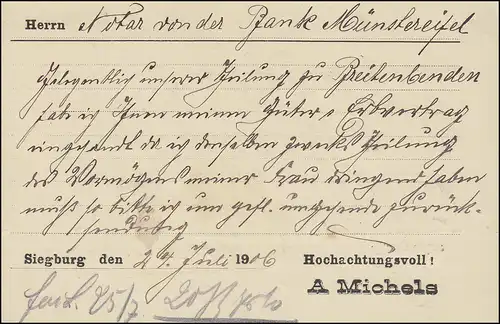 Herrn Notar von der Bank Münstereifel
Gelegentlich unserer Theilung zu Breitenbenden
habe ich Ihnen meinen Güter & Erbvertrag
eingesandt da ich denselben zwecks Theilung
des Vermögens meiner Frau dringend haben
muß so bitte ich um gefl. umgehende zurück-
sendung
Siegburg den 24. Juli 1906 Hochachtungsvoll!
A Michels
25/7